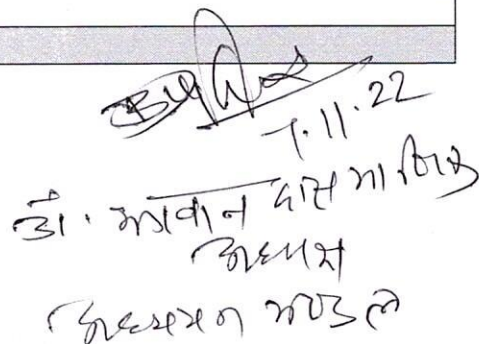 7.11.22
डॉ. भगवान दास माणिक
अध्यक्ष
अध्ययन मण्डल